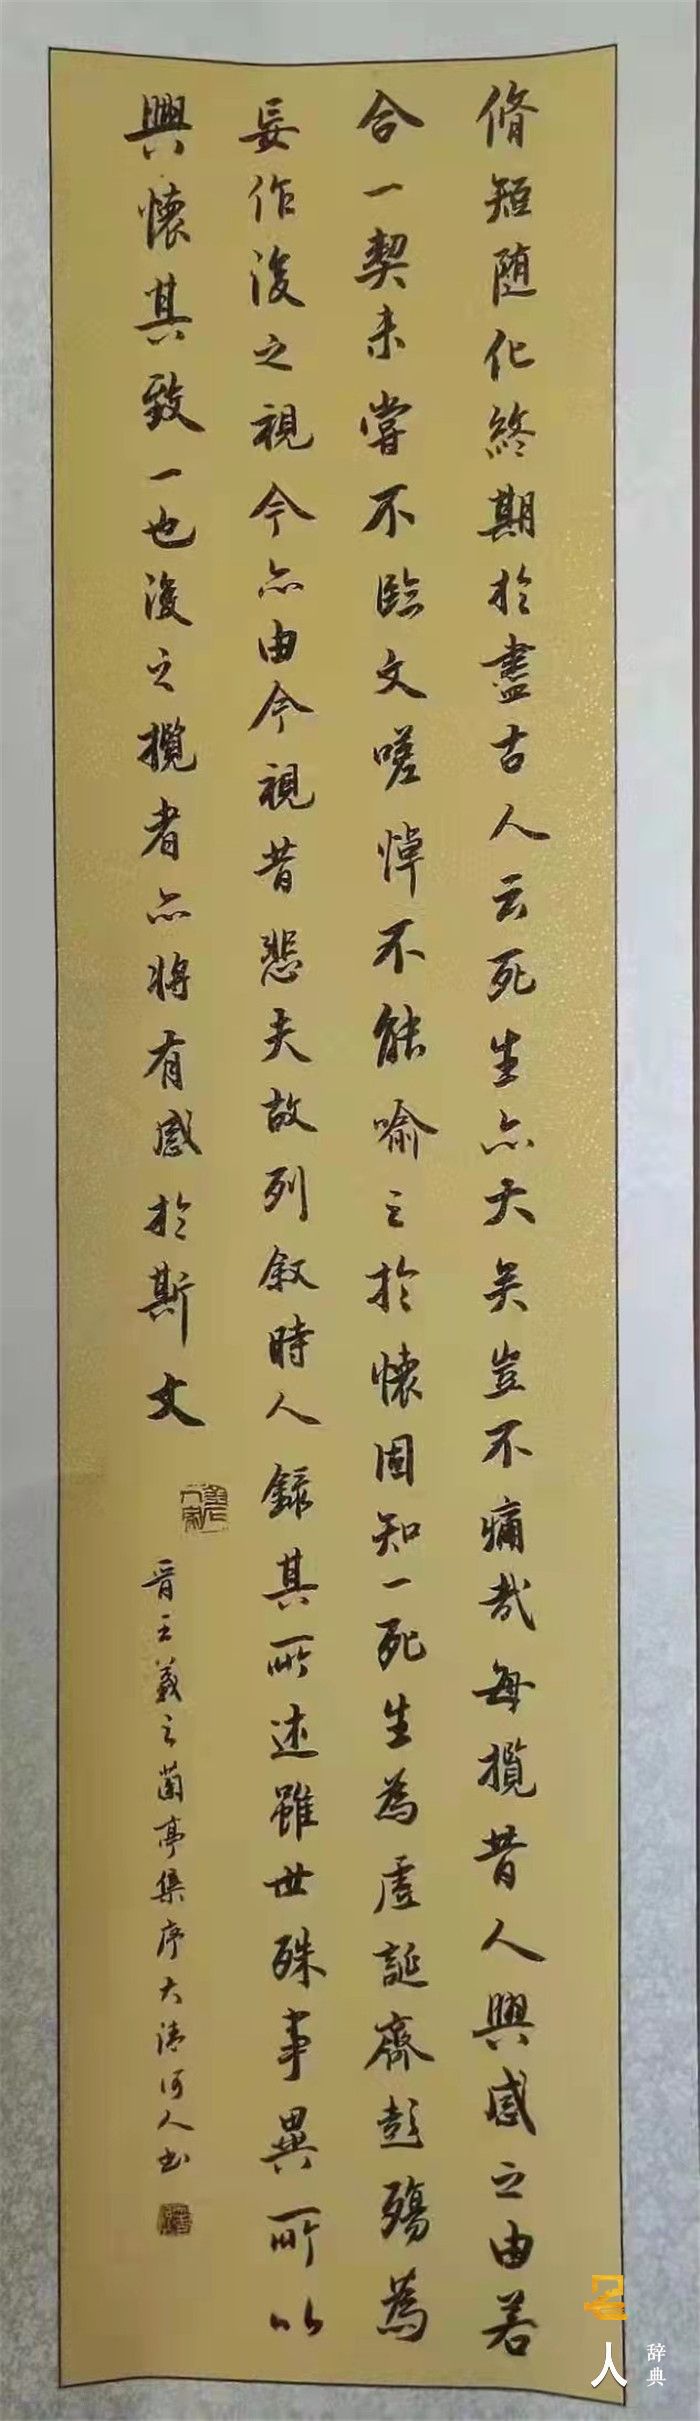 脩短随化終期於盡古人云死生亦大矣豈不痛哉每攬昔人興感之由若
合一契未嘗不臨文嗟悼不能喻之於懷固知一死生為虛誕齊彭殤為
妄作後之視今亦由今視昔悲夫故列叙時人錄其所述雖世殊事異所以
興懷其致一也後之攬者亦將有感於斯文
晋王羲之蘭亭集序大清河人书
名人
辞典